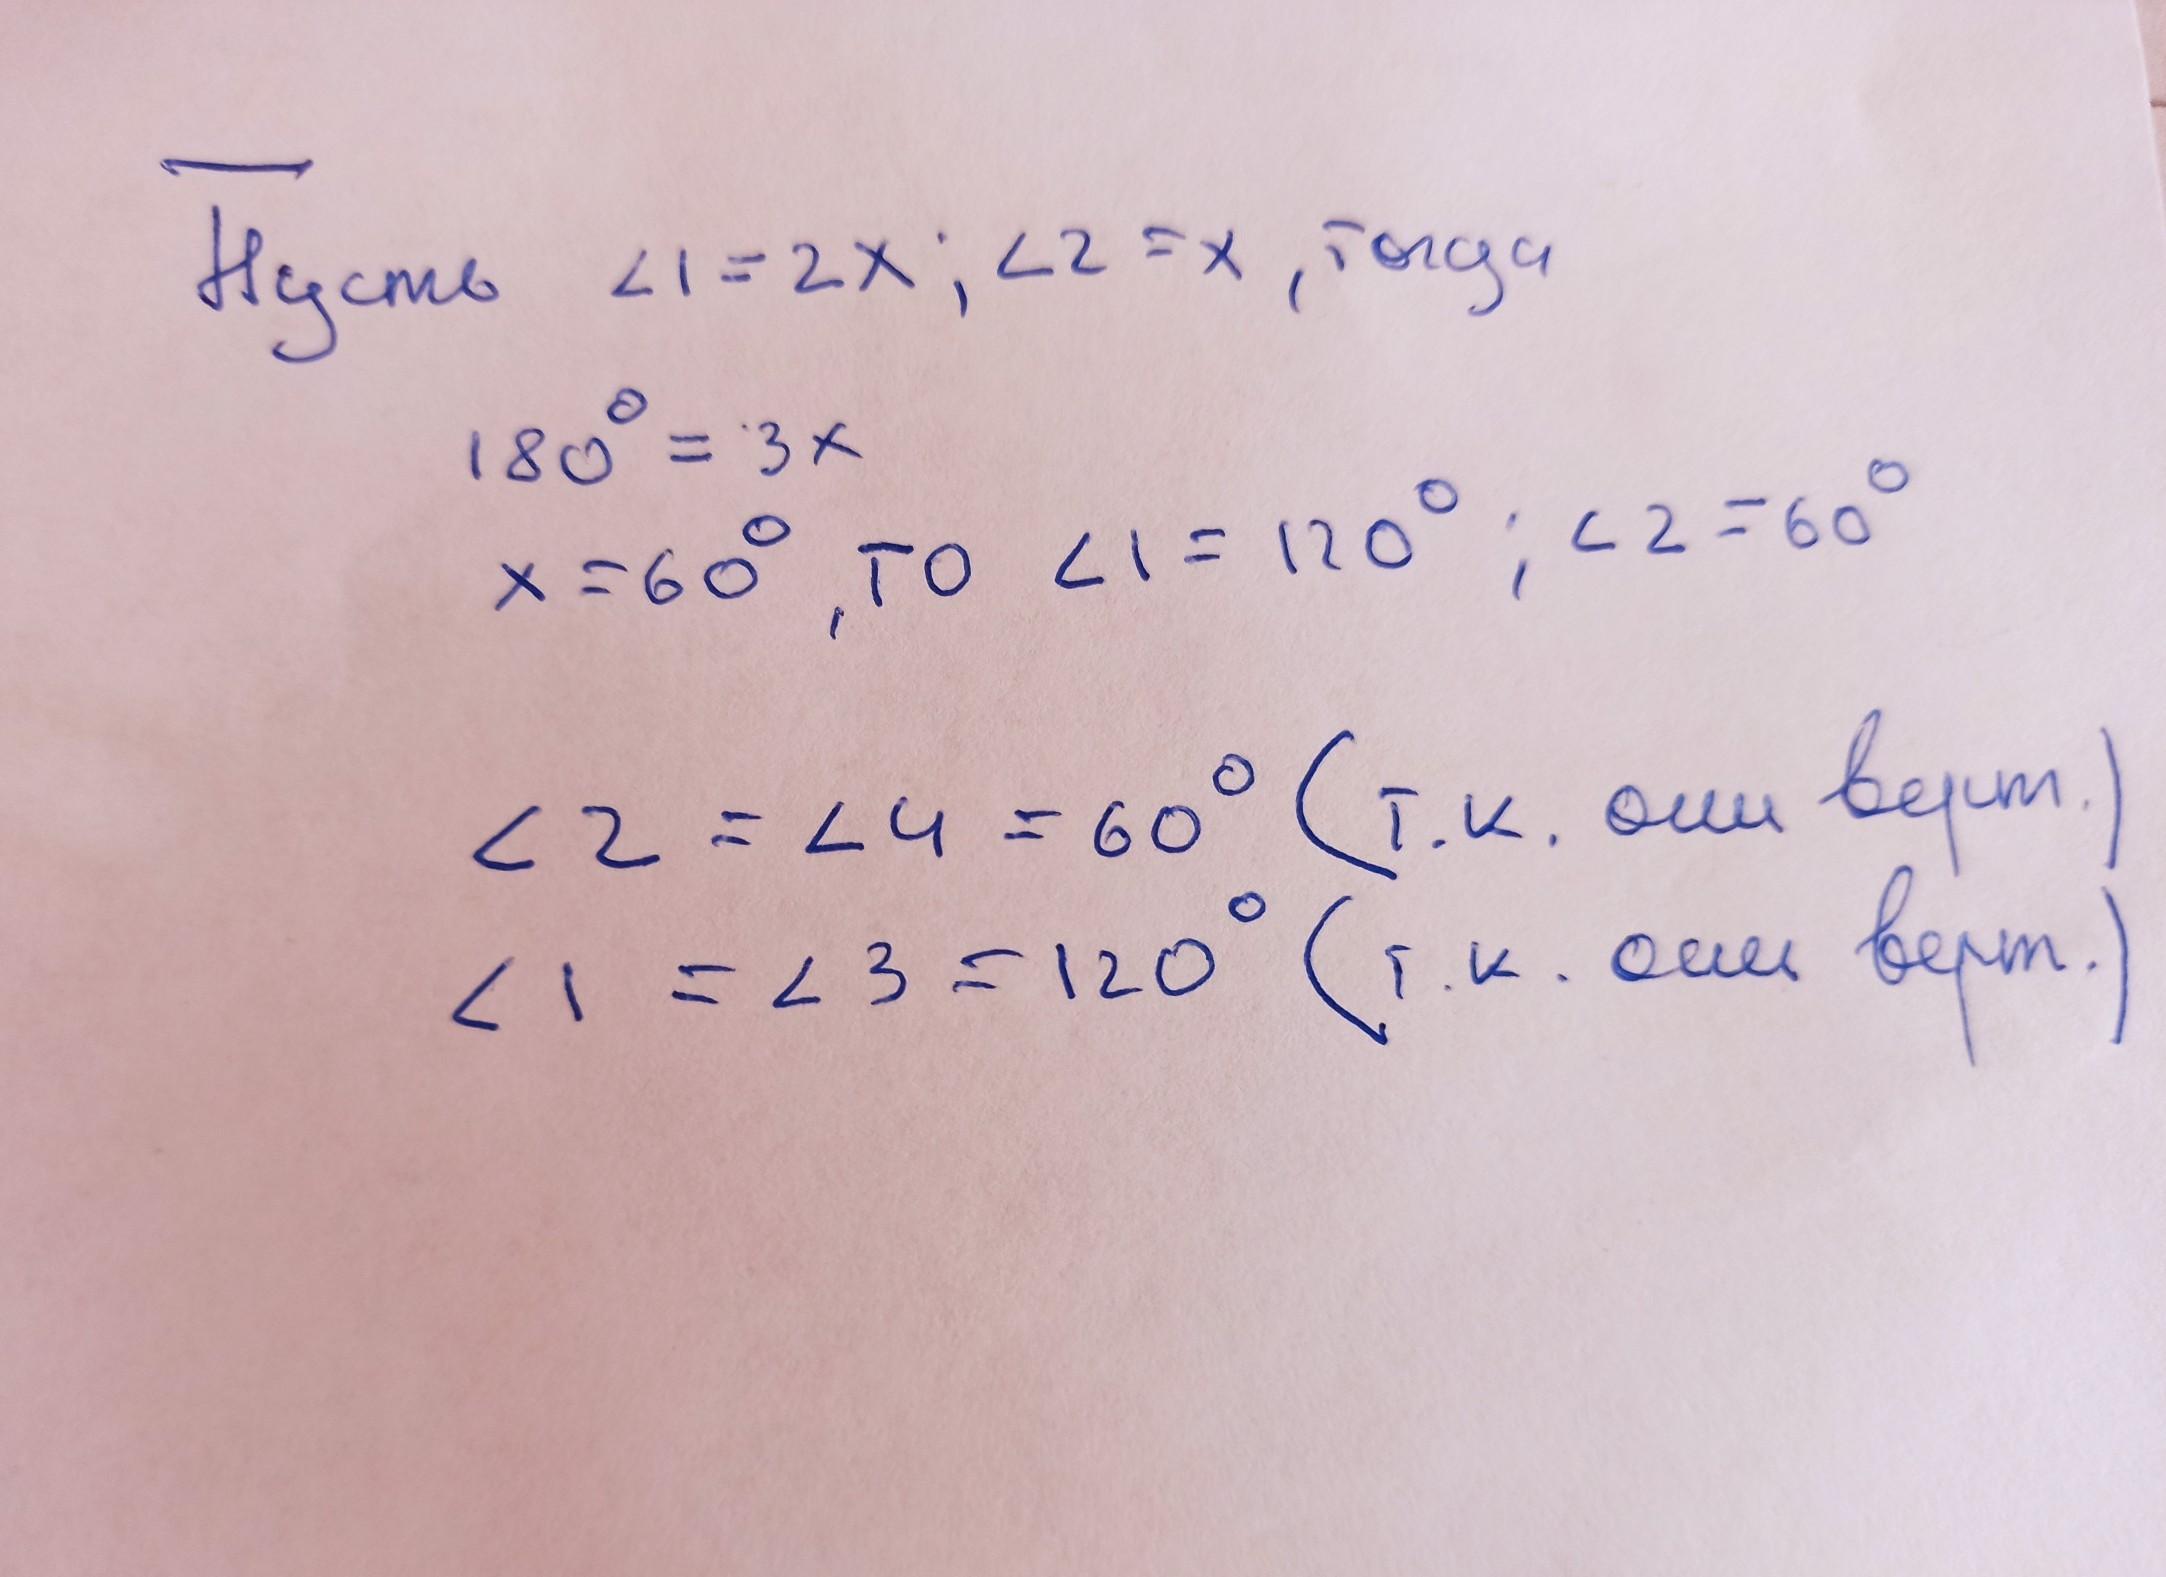 Пусть ∠1=2x; ∠2=x, тогда
180°=3x
x=60°, то ∠1=120°; ∠2=60°
∠2=∠4=60° (т.к. они верт.)
∠1=∠3=120° (т.к. они верт.)